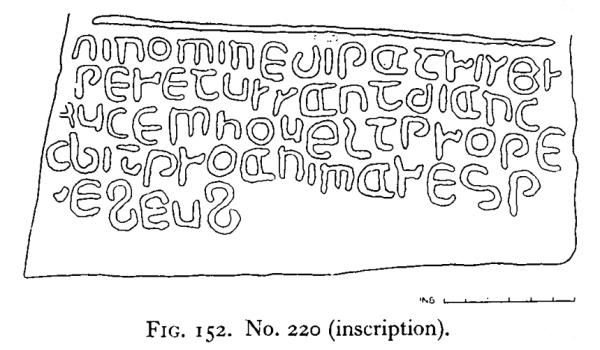 NINOMINEDIPATRISET
PERETUSSANTDIANC
UCEMHOUELTPROPE
ABITPROANIMARESP
ESEUS
INS
FIG. 152. No. 220 (inscription).